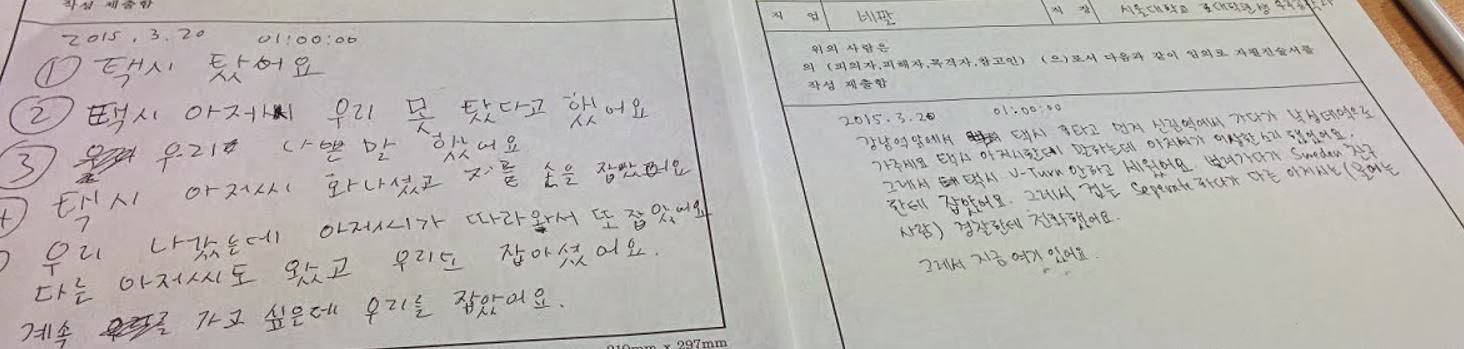 작성 제출함
2015.3.20 01:00:00
① 택시 탔어요
② 택시 아저씨 우리 못 탔다고 했어요
③ 우리 나쁜 말 했어요
택시 아저씨 화나셨고 손을 잡았어요
우리 나갔는데 아저씨가 따라와서 또 잡았어요
다른 아저씨도 왔고 우리도 잡아셨어요.
계속 가고 싶은데 우리를 잡았어요.
210mm x 297mm
직 업 네팔 직 장 서울대학교
위의 사람은
의 (피의자,피해자,목격자,참고인) (으)로서 다음과 같이 임의로 자필진술서를
작성 제출함
2015.3.20 01:00:00
강남역앞에서 택시 타고 먼저 신림역에서 가다가 낙성대역으로
가주세요 택시 아저씨한테 말하는데 아저씨가 이상한 소리 했었어요.
그래서 택시 U-Turn 안하고 세웠어요. Sweden 친구
한테 잡았어요. 그래서 저는 Seperate 하다가 다른 아저씨는 (모르는
사람) 경찰한테 전화했어요.
그래서 지금 여기 있어요.